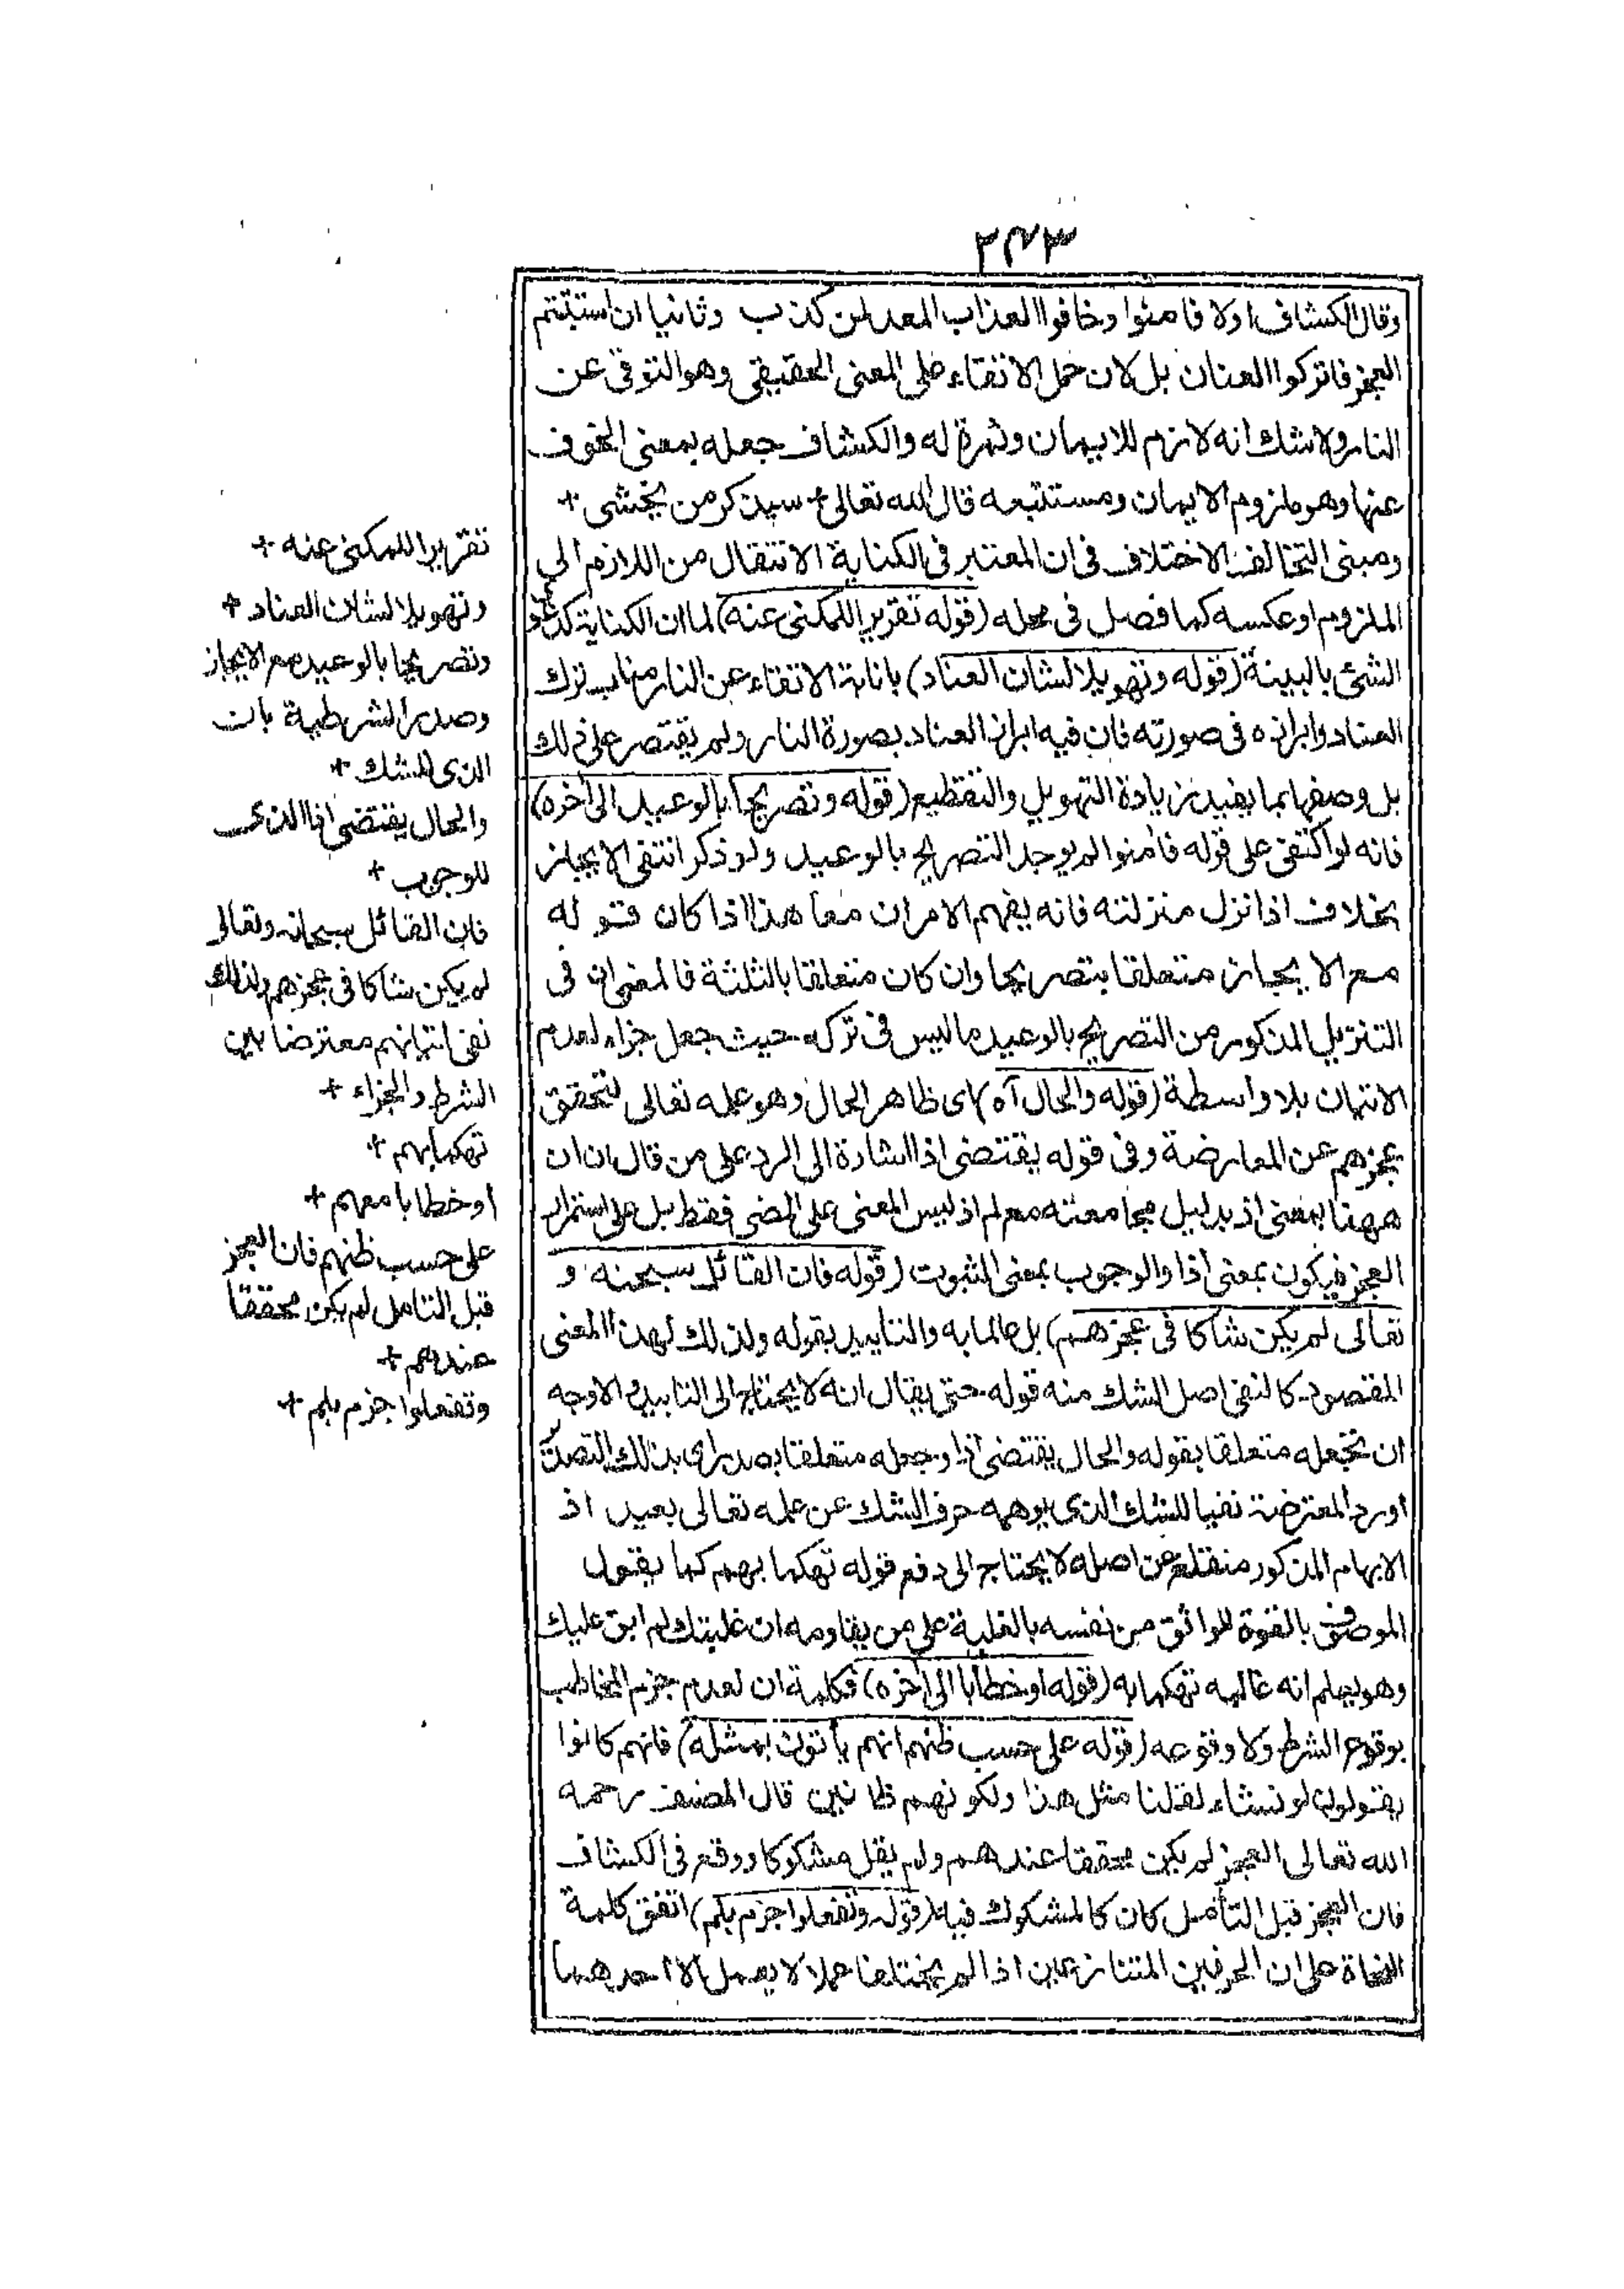 ٢٧٣
وقال الكشاف اولا فامنوا وخافوا العذاب المعد لمن كذب وثانيا ان استبنتم
العجز فاتركوا العنان بل لان حمل الاتقاء على المعنى الحقيقي وهو التوقى عن
النار ولا شك انه لازم للايمان وثمرة له والكشاف جعله بمعنى الخوف
عنها وهو ملزوم الايمان ومستتبعه قال الله تعالى + سيذكر من يخشى +
ومبنى التخالف الاختلاف فى ان المعتبر فى الكناية الانتقال من اللازم الى
الملزوم او عكسه كما فصل فى محله (قوله تقرير اللمكنى عنه) لما ان الكناية كدعو
الشئ بالبينة (قوله وتهويلا لشان العناد) بانابة الاتقاء عن النار مناب ترك
العناد وابرازه فى صورته فان فيه ابراز العناد بصورة النار ولم يقتصر على ذلك
بل وصفها بما يفيد زيادة التهويل والتفظيع (قوله وتصريحا بالوعيد الى أخره)
فانه لو اكتفى على قوله فأمنوا لم يوجد التصريح بالوعيد ولو ذكر انتفى الايجاز
بخلاف اذا نزل منزلته فانه يفهم الامران معا هذا اذا كان قوله
مع الايجاز متعلقا بتصريحا وان كان متعلقا بالثلثة فالمعنى ان فى
التنزيل المذكور من التصريح بالوعيد ما ليس فى تركه حيث جعل جزاء لعدم
الاتيان بلا واسطة (قوله والحال آه) اى ظاهر الحال وهو علمه تعالى لتحقق
عجزهم عن المعارضة وفى قوله يقتضى اذا اشارة الى الرد على من قال ان ان
ههنا بمعنى اذ بدليل مجامعته مع لم اذ ليس المعنى على المضى فقط بل على استمرار
العجز فيكون بمعنى اذا والوجوب بمعنى الثبوت (قوله فان القائل سبحنه و
تعالى لم يكن شاكا فى عجزهم) بل عالما به والتاييد بقوله ولذلك لهذا المعنى
المقصود كالنفى اصل الشك منه قوله حتى يقال انه لا يحتاج الى التاييد والاوجه
ان تجعله متعلقا بقوله والحال يقتضى اذا وجعله متعلقا بصدر اى بذلك التصدير
اورد المعترضة نفيا للشك الذى يوهمه حرف الشك عن علمه تعالى بعيد اذ
الايهام المذكور منقلع عن اصله لا يحتاج الى دفع قوله تهكما بهم كما يقول
الموصوف بالقوة الواثق من نفسه بالغلبة على من يقاومه ان غلبتك لم ابق عليك
وهو يعلم انه غالبه تهكما به (قوله او خطابا الى أخره) فكلمة ان لعدم جزم المخاطب
بوقوع الشرط ولا وقوعه (قوله على حسب ظنهم انهم يأتون بمثله) فانهم كانوا
يقولون لو نشاء لقلنا مثل هذا ولكونهم ظانين قال المصنف رحمه
الله تعالى العجز لم يكن محققا عندهم ولم يقل مشكوكا ووقع فى الكشاف
فان العجز قبل التأمل كان كالمشكوك فيه (قوله وتفعلوا جزم بلم) اتفق كلمة
النحاة على ان الحرفين المتنازعين اذا لم يختلفا عملا لا يعمل الا احدهما
تقرير اللمكنى عنه +
وتهويلا لشان العناد +
وتصريحا بالوعيد مع الايجاز
وصدر الشرطية بان
الذى للشك +
والحال يقتضى اذا الذى
للوجوب +
فان القائل سبحانه وتعالى
لم يكن شاكا فى عجزهم ولذلك
نفى اتيانهم معترضا بين
الشرط والجزاء +
تهكما بهم +
او خطابا معهم +
على حسب ظنهم فان العجز
قبل التامل لم يكن محققا
عندهم +
وتفعلوا جزم بلم +